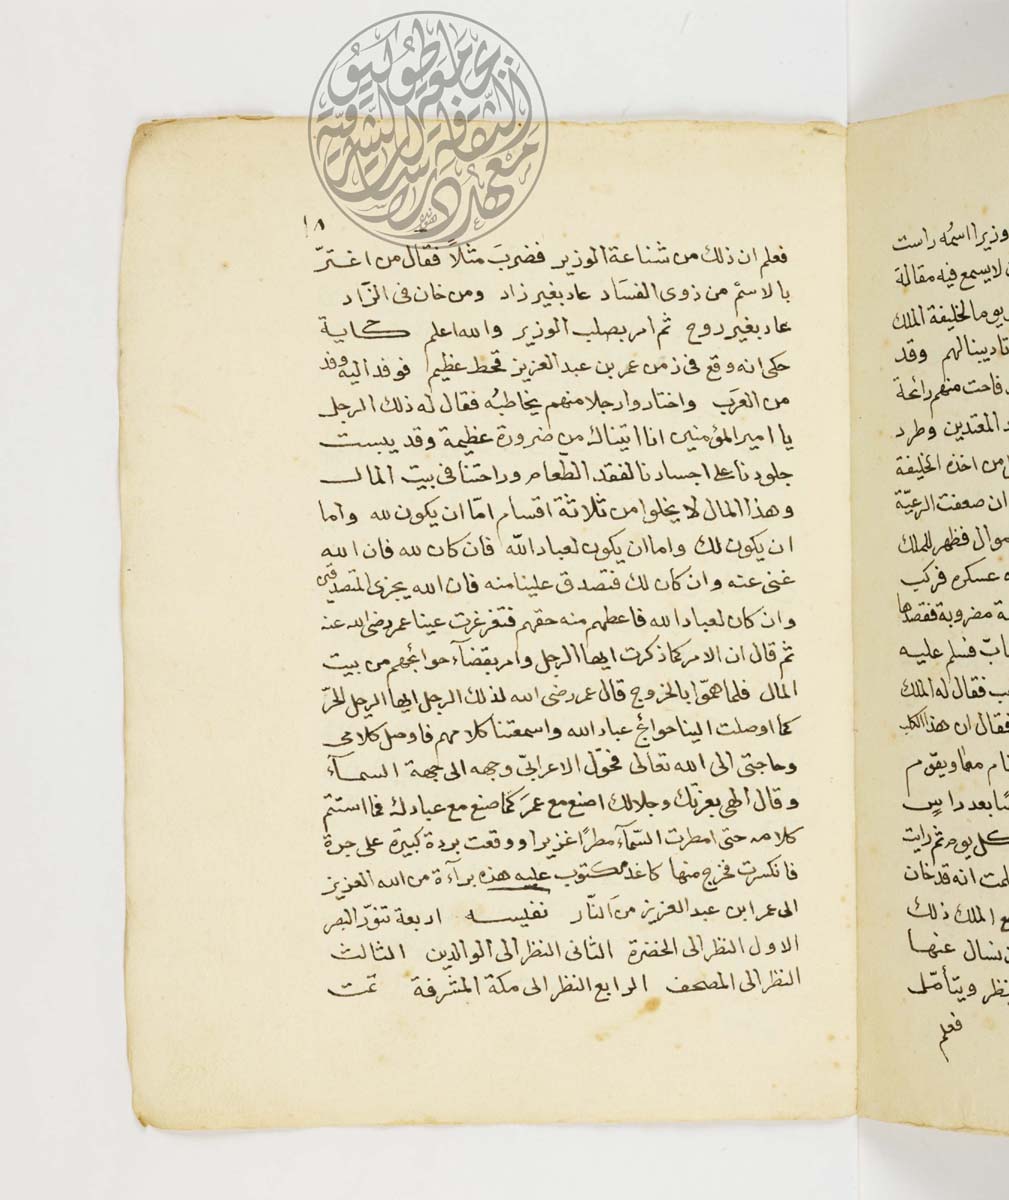 ١٨
فعلم ان ذلك من شناعة الوزير فضربَ مثلاً فقال من اغترّ
بالاسم من ذوى الفسَاد عاد بغير زاد ومن خان فى الزّاد
عاد بغير روح ثم امر بصلب الوزير والله اعلم حكاية
حكى انه وقع فى زمن عمر بن عبد العزيز قحط عظيم فوفد اليه وفد
من العَرب واختاروا رجلا منهم يخاطبُه فقال له ذلك الرجل
يا امير المؤمنين انا اتيناك من ضرورة عظيمة وقد يبست
جلودنا على اجسادنا لفقد الطعام وراحتنا فى بيت المال
وهذا المال لا يخلوا من ثلاثة اقسام امّا ان يكون لله واما
ان يكون لك واما ان يكون لعباد اللّه فان كان لله فان الله
غنى عنه وان كان لك فتصدق علينا منه فان الله يجزى المتصدقين
وان كان لعباد الله فاعطهم منه حقهم فتغرغرت عينا عمر رضى الله عنه
ثم قال ان الامر كما ذكرت ايها الرجل وامر بقضآء حوائجهم من بيت
المال فلما همّوا بالخروج قال عمر رضى الله لذلك الرجل ايها الرجل الحرّ
كما اوصلت الينا حوائج عباد الله واسمعتنا كلامهم فاوصل كلامى
وحاجتى الى الله تعالى فحوّل الاعرابىّ وجهه الى جهة السمآء
وقال الهى بعزتك وجلالك اصنع مع عمرَ كما صنع مع عبادك فما استتم
كلامه حتى امطرت السّمآء مطرًا غزيرا ووقعت بردة كبيرة على جرة
فانكسرت فخرج منها كاغد مكتوب عليه هذه برآءة من الله العزيز
الى عمر ابن عبد العزيز من النّار نفيسه اربعة تنوّر البصر
الاول النظر الى الخضرة الثانى النظر الى الوالدين الثالث
النظر الى المصحف الرابع النظر الى مكة المشرفة تمت
وزيرا اسمُه راست
لا يسمع فيه مقالة
يوما لخليفة الملك
وقد
فاحت منهم رائحة
المعتدين وطرد
من اخذه الخليفة
ان ضعفت الرعيّة
موال فظهر للملك
عسكره فركب
مضروبة فقصدها
فسلم عليه
فقال له الملك
فقال ان هذا الكلب
ويقوم
بعد راسٍ
كل يوم ثم رايت
انه قد خان
الملك ذلك
يسال عنها
ويتأمّل
فعلم